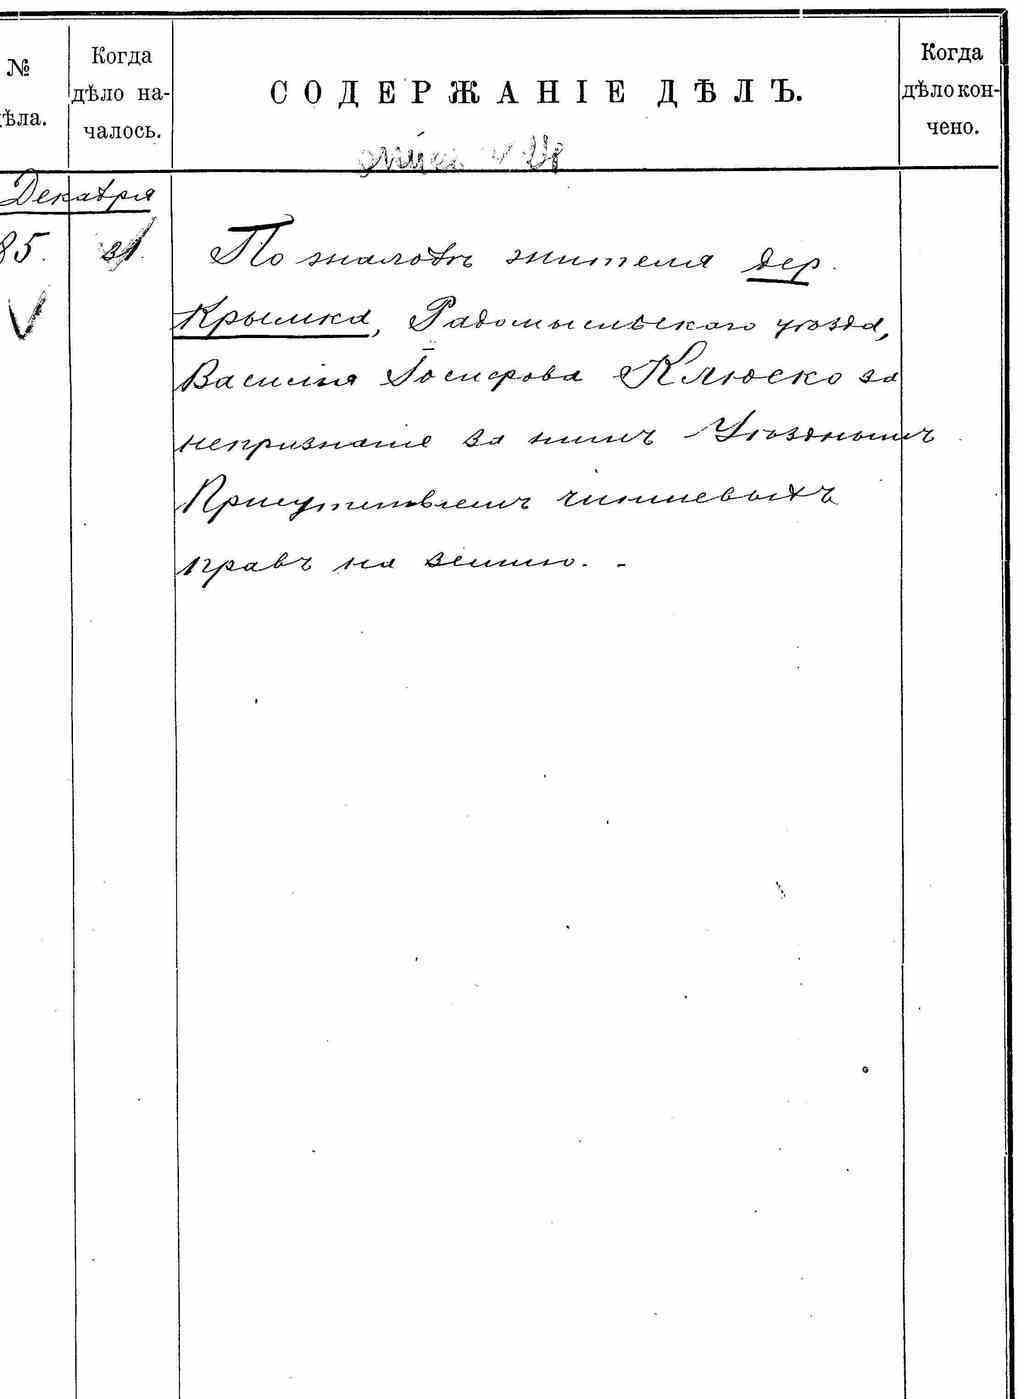 №
дѣла.
Когда
дѣло на-
чалось.
СОДЕРЖАНІЕ ДѢЛЪ.
Когда
дѣло кон-
чено.
Декабря
85. 31.
По жалобѣ жителя дер.
Крымка, Радомысльскаго уѣзда,
Василія Іосифова Клюско за
непризнаніе за нимъ Уѣзднымъ
Присутствіемъ чиншевыхъ
правъ на землю. -